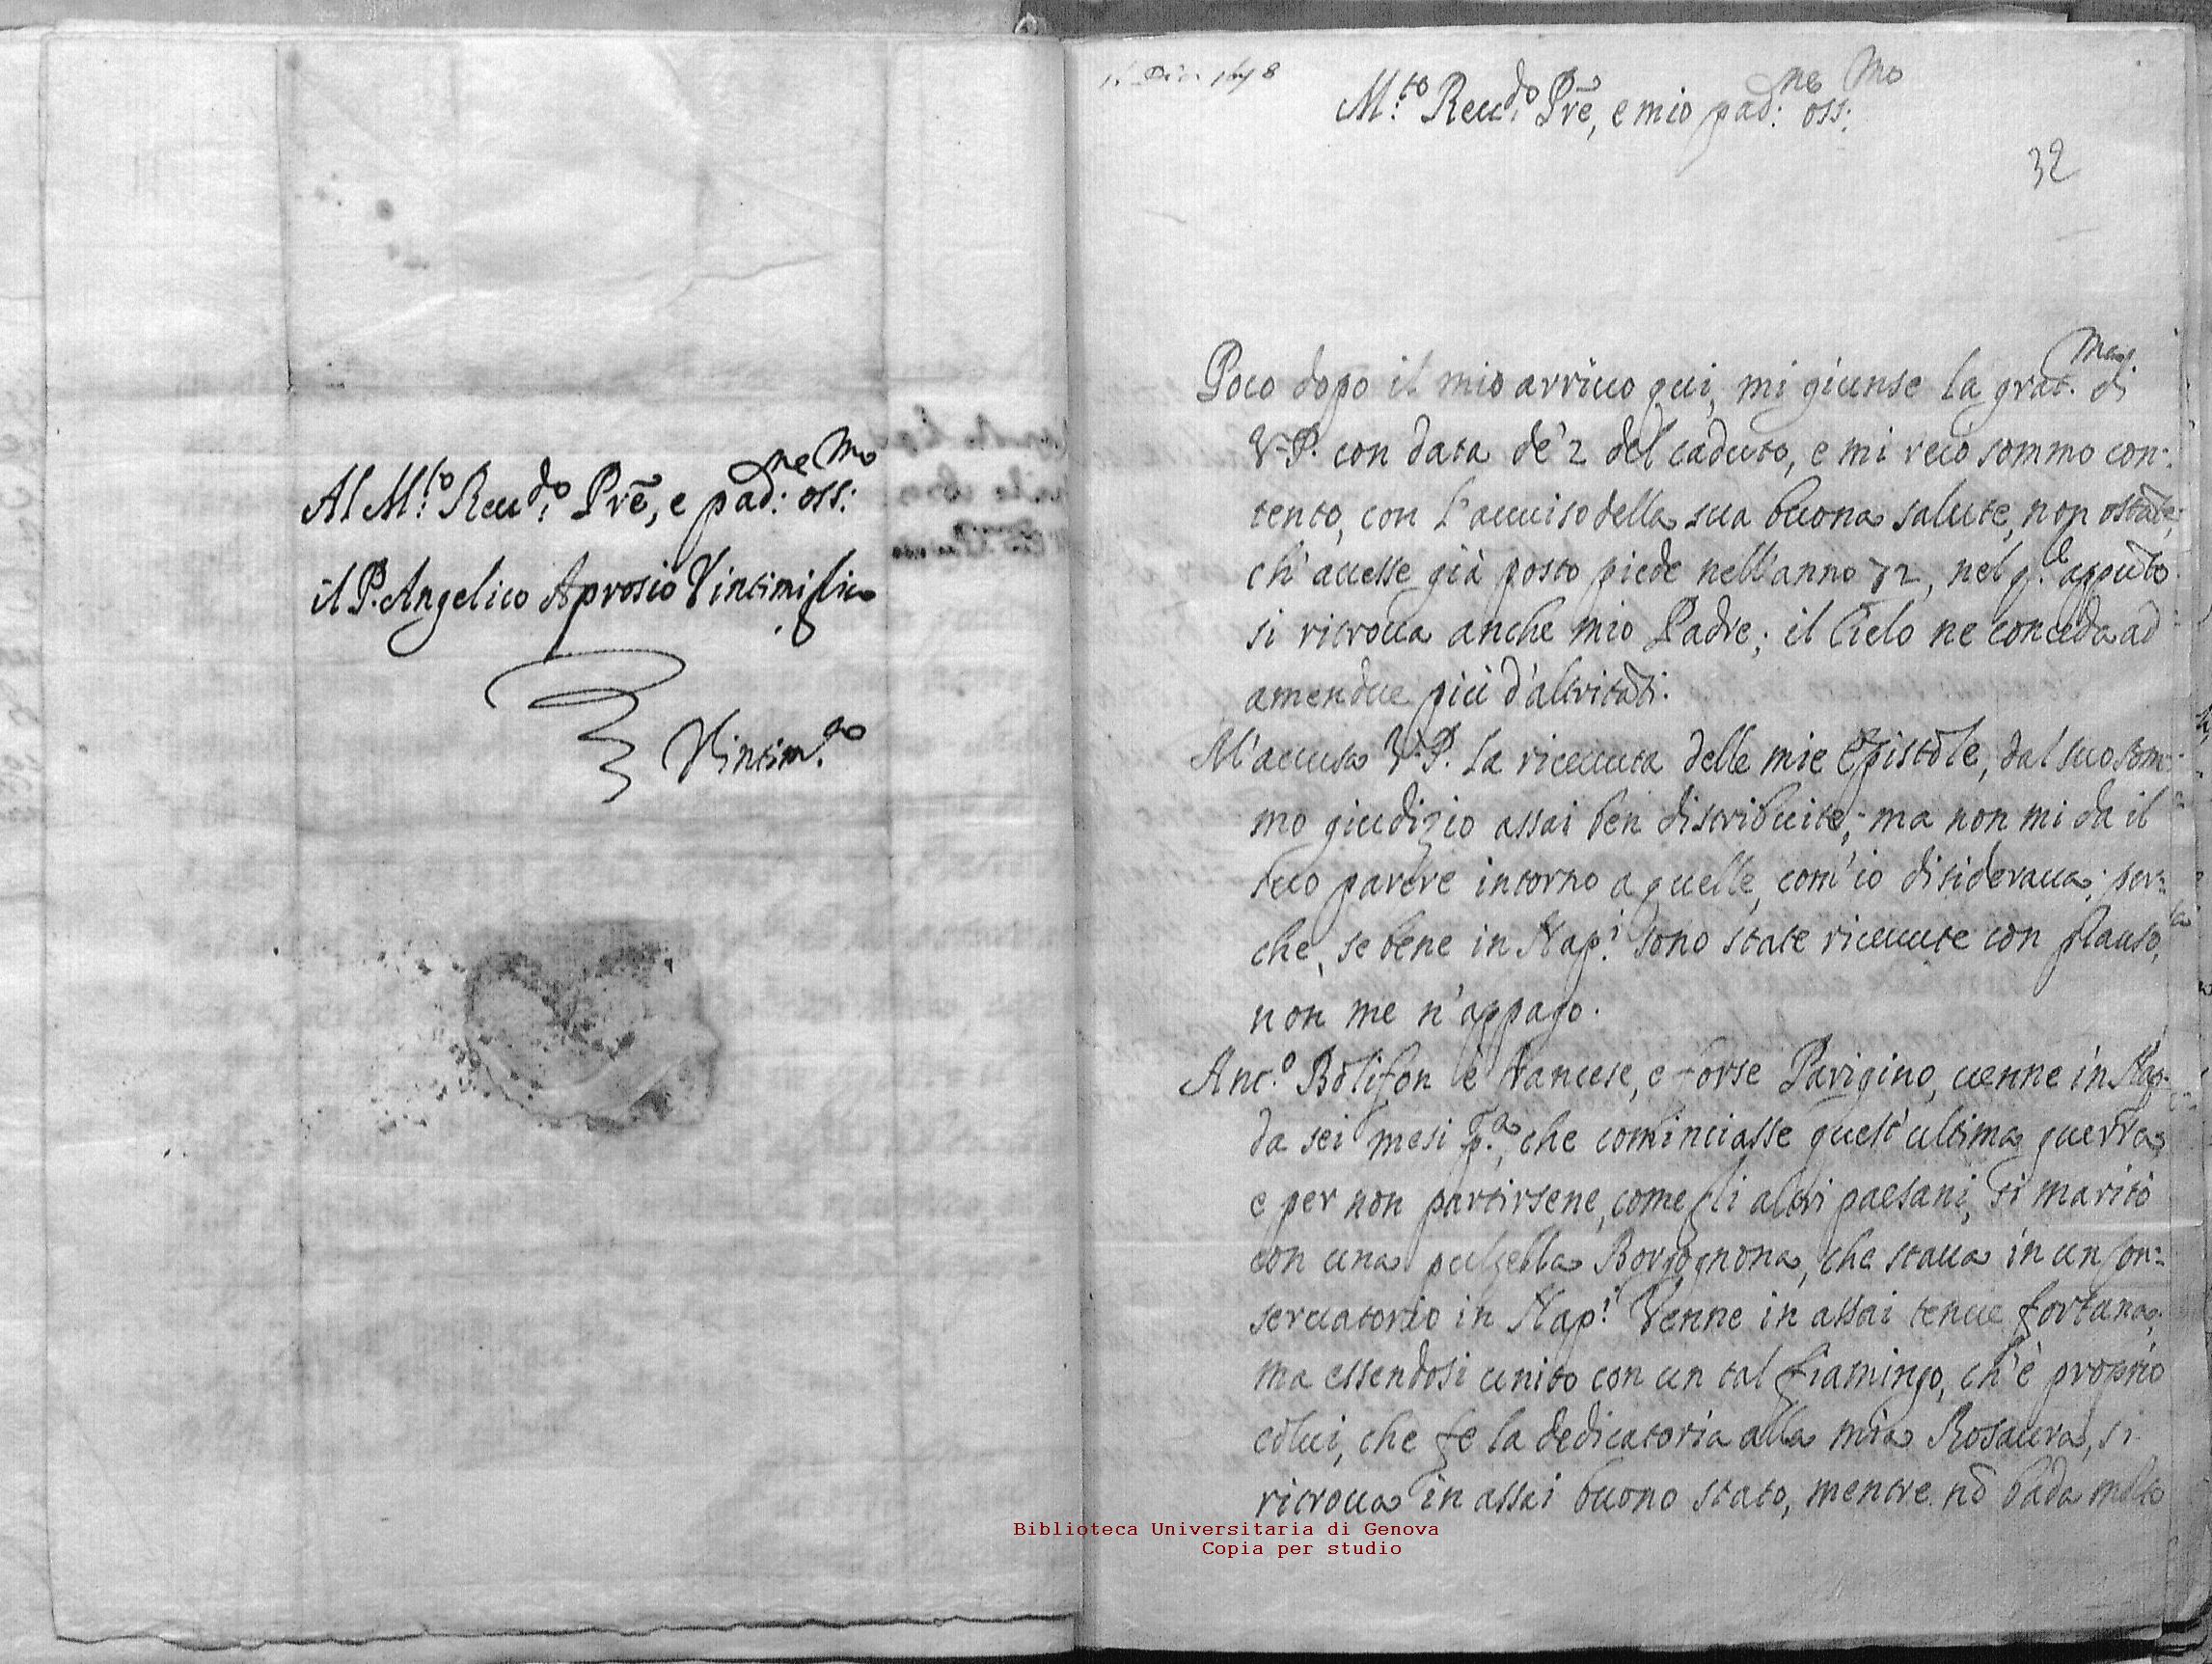 Al M.to Reu.do Prē, e pad:ne oss:mo
il P. Angelico Aprosio Vintimiglia
Vintim.a
Dic. 1678
M.to Reu.do Prē, e mio pad:ne oss:mo
32
Poco dopo il mio arriuo qui, mi giunse la grat.ma di
V. P. con data de' 2 del caduto, e mi recò sommo con:
tento, con l'auuiso della sua buona salute, non ostāte,
ch'auesse già posto piede nell'anno 72, nel q.le appūto
si ritroua anche mio Padre; il Cielo ne conceda ad
amendue più d'altritāti.
M'accusa V. P. la riceuuta delle mie Epistole, dal suo som:
mo giudizio assai ben distribuite; ma non mi dà il
suo parere intorno a quelle, com'io disideraua; per:
che, se bene in Nap.i sono state riceuute con plauso,
non me n'appago.
Ant.o Bolifon è francese, e forse Parigino, uenne in Nap.
da sei mesi p.a, che cominciasse quest'ultima guerra,
e per non partirsene, come gli altri paesani, si maritò
con una pulzella Borgognona, che staua in un Con:
seruatorio in Nap.i Venne in assai tenue fortuna;
ma essendosi unito con un tal fiamingo, ch'è proprio
colui, che fe la dedicatoria alla mia Rosaura, si
ritroua in assai buono stato, mentre nō bada molto
Biblioteca Universitaria di Genova
Copia per studio